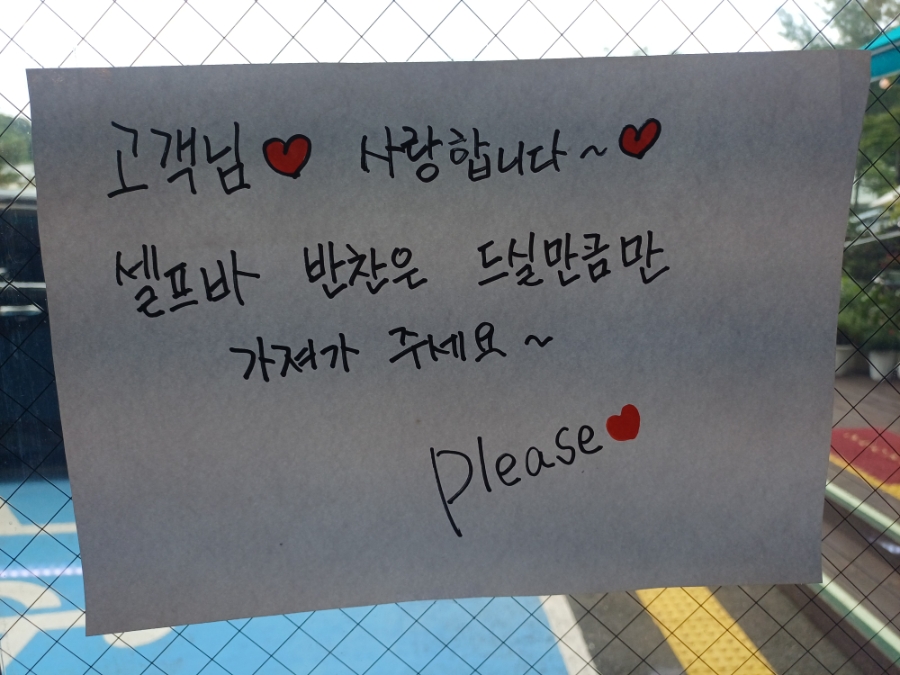 고객님♥ 사랑합니다~♥
셀프바 반찬은 드실만큼만
가져가 주세요~
please♥